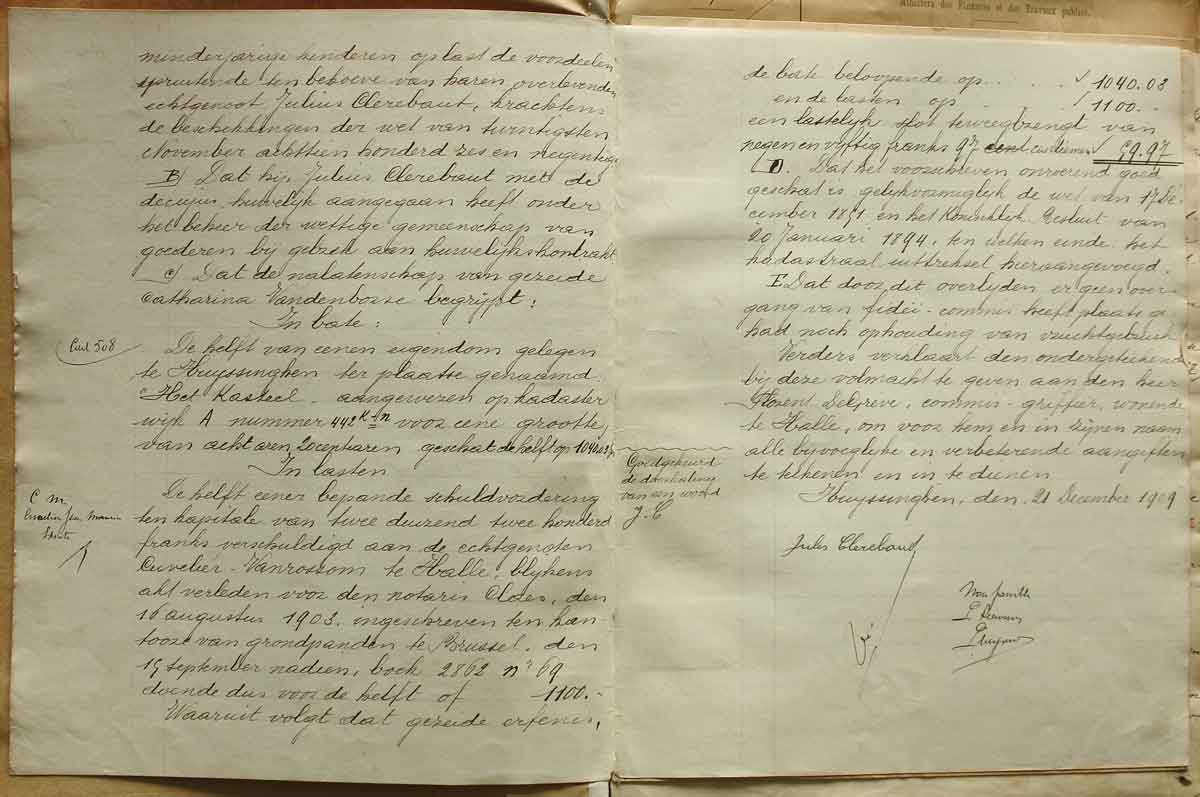 Ministère des Finances et des Travaux publics.
minderjarige kinderen op last de voordeelen
spruitende ten behoeve van haren overlevenden
echtgenoot Julius Clerebaut, krachtens
de beschikkingen der wet van twintigsten
November achttien honderd zes en negentig.
B) Dat hij, Julius Clerebaut met de
decujus, huwelijk aangegaan heeft onder
het beheer der wettige gemeenschap van
goederen bij gebrek aan huwelijkskontrakt
C) Dat de nalatenschap van gezeide
Catharina Vandenbosse begrijpt:
In bate:
De helft van eenen eigendom gelegen
te Huyssinghen ter plaatse genaamd
Het Kasteel - aangewezen op kadaster
wijk A nummer 442 voor eene grootte
van acht aren, 20 centiaren geschat de helft op 1040.03
In lasten
De helft eener bepande schuldvordering
ten kapitale van twee duizend twee honderd
franks verschuldigd aan de echtgenoten
Cuvelier-Vanrossom te Halle, blijkens
akt verleden voor den notaris Claes, den
16 augustus 1903, ingeschreven ten kan-
toore van grondpanden te Brussel, den
15 September nadien, boek 2862 nr 69
doende dus voor de helft of 1100.-
Waaruit volgt dat gezeide erfenis,
508
C m
de bate beloopende op . . . 1040.03
en de lasten op . . 1100.-
een lastelijk slot teweegbrengt van
negen en vijftig franks 97 centiemen 59.97
D. Dat het voorschreven onroerend goed
geschat is, gelijkvormiglijk de wet van 17 De-
cember 1851 en het Koninklijk Besluit van
20 Januari 1894, ten welken einde het
kadastraal uittreksel hieraangevoegd.
E Dat door dit overlijden er geen over-
gang van fideï-commis heeft plaats ge
had noch ophouding van vruchtgebruik
Verders verklaart den ondergeteekende
bij deze volmacht te geven aan den heer
Florent Degreve, commis-griffier, wonende
te Halle, om voor hem en in zijnen naam
alle bijvoeglijke en verbeterende aangiften
te teekenen en in te dienen
Huyssinghen, den, 21 December 1909
Goedgekeurd
de doorhaling
van een woord
J.C
Jules Clerebaut